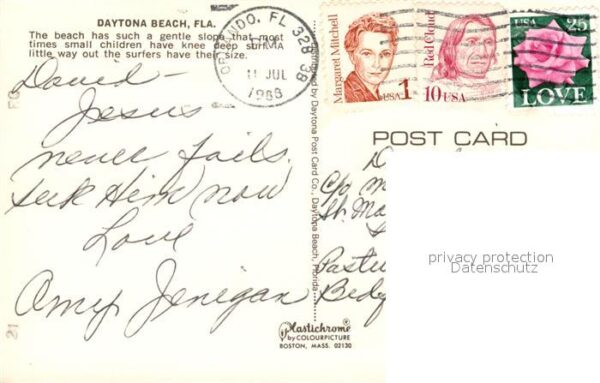 DAYTONA BEACH, FLA.
The beach has such a gentle slope that most
times small children have knee deep surf. A
little way out the surfers have their size.
ORLANDO, FL 328 3B
PM
11 JUL
1988
Margaret Mitchell
USA 1
Red Cloud
10 USA
USA 25
LOVE
David –
Jesus
never fails.
Seek Him now
Love
Amy Jenigan
by Daytona Post Card Co., Daytona Beach, Florida
POST CARD
D
c/o M
St. Ma
Pastu
Bedf
privacy protection
Datenschutz
21
Plastichrome
by COLOURPICTURE
BOSTON, MASS. 02130